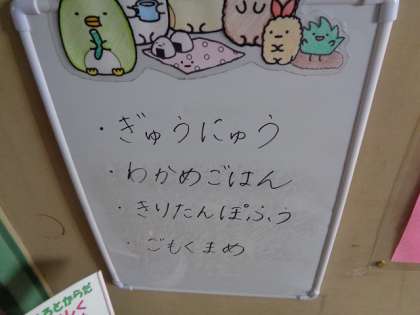 ・ぎゅうにゅう
・わかめごはん
・きりたんぽふう
・ごもくまめ
ろとからだ